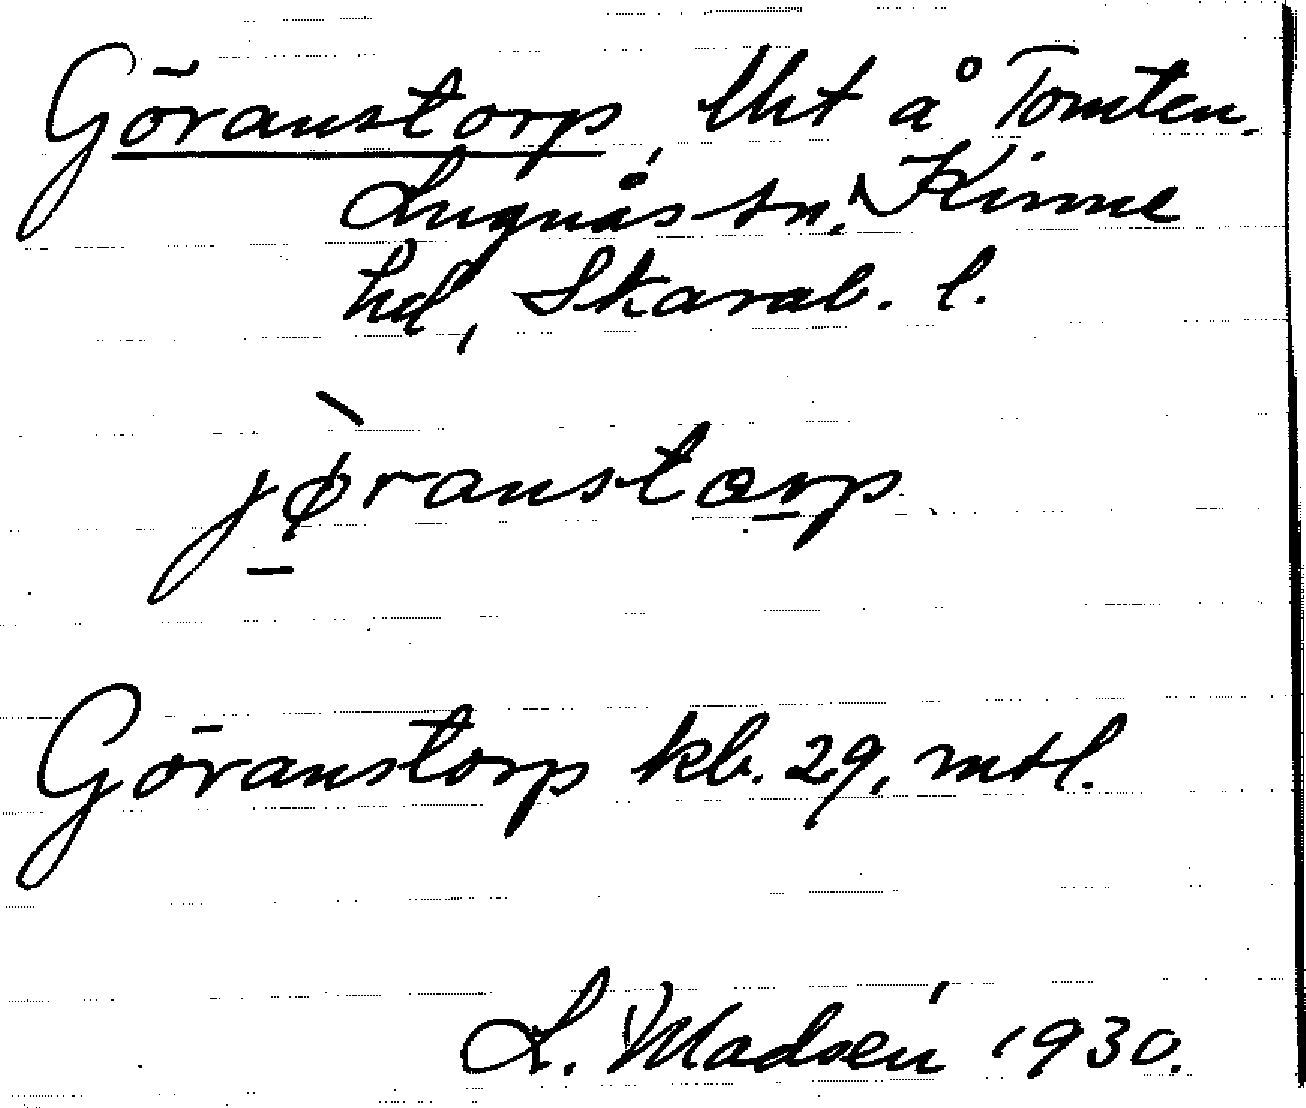 Göranstorp, lht å Tomten.
Lugnås sn, Kinne
hd, Skarab. l.
jøranstorp
Göranstorp kb. 29, mtl.
L. Madsén 1930.